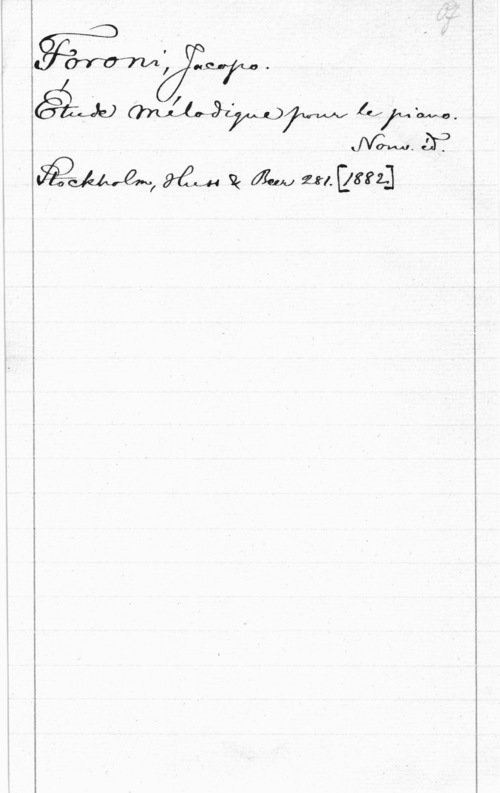 Foroni, Jacopo.
Étude mélodique pour le piano.
Nouv. éd.
Stockholm, Huss & Beer 281. [1882]